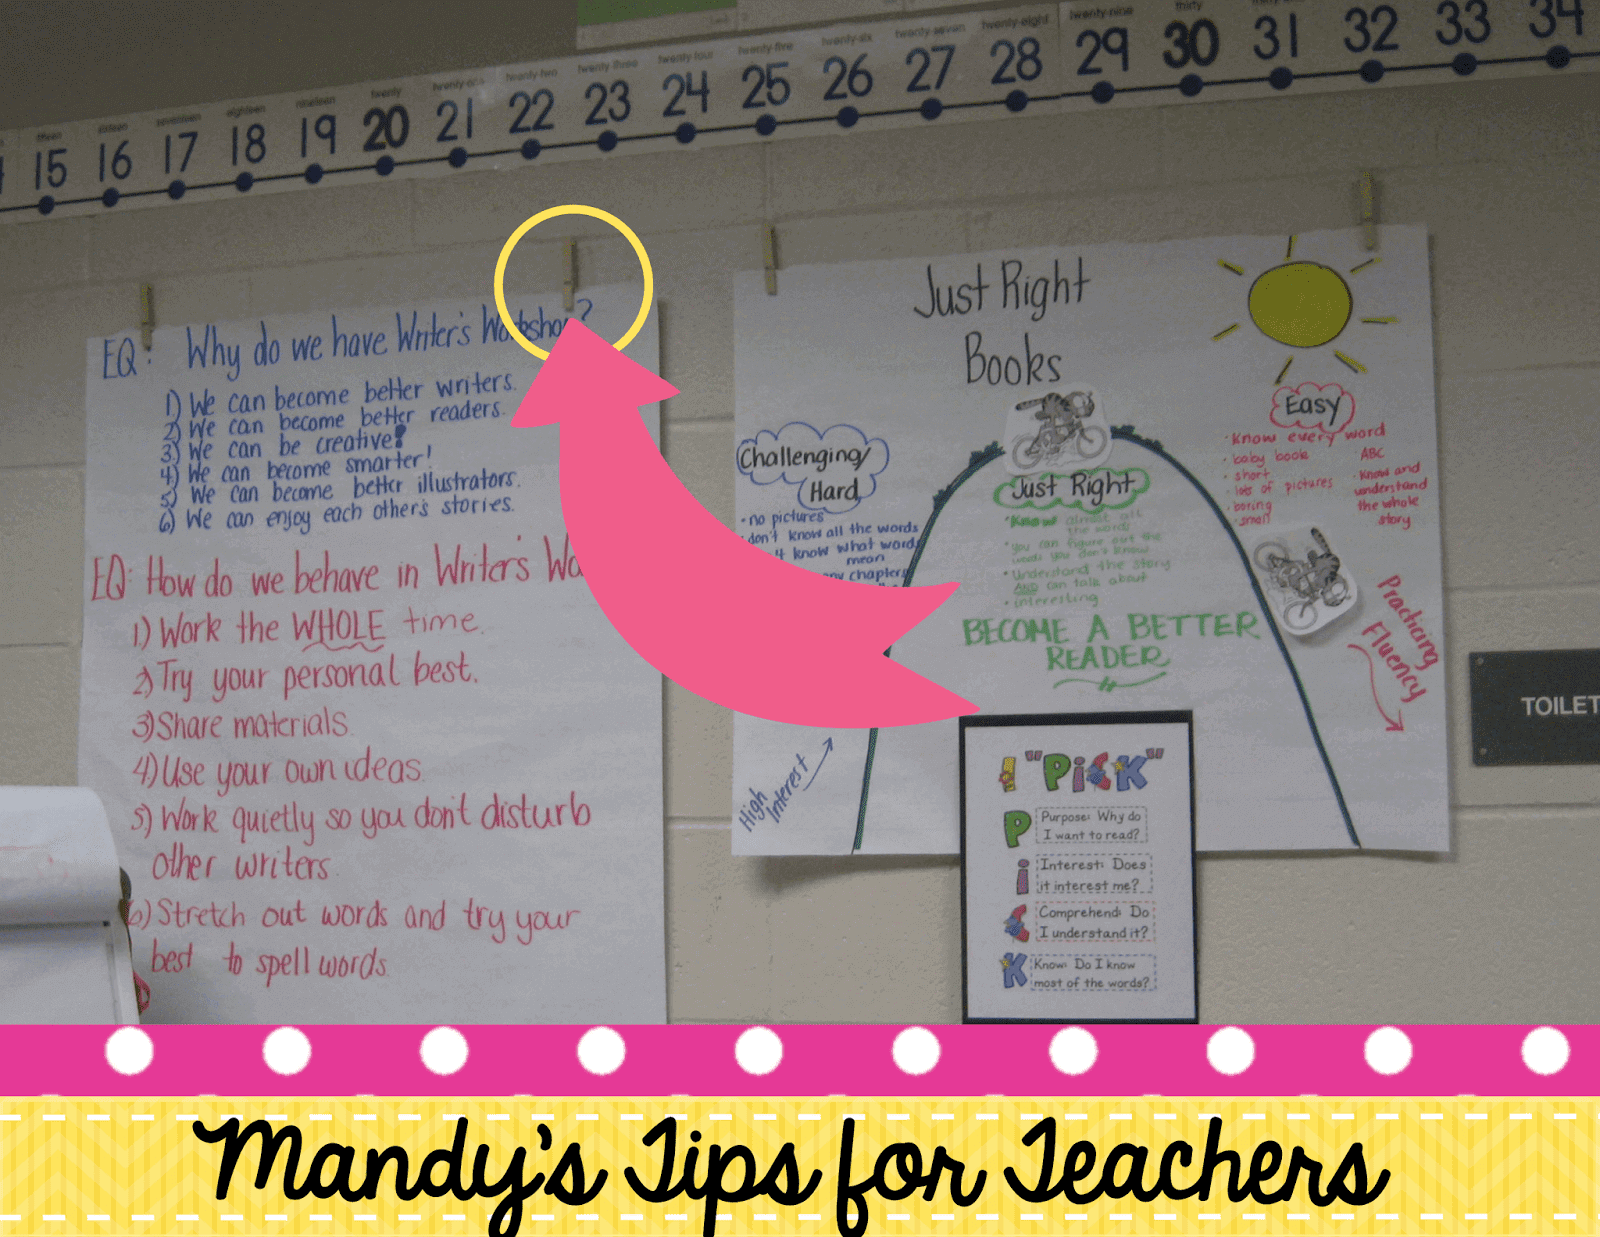 fifteen sixteen seventeen eighteen nineteen twenty twenty-one twenty-two twenty-three twenty-four twenty-five twenty-six twenty-seven twenty-eight twenty-nine thirty
15 16 17 18 19 20 21 22 23 24 25 26 27 28 29 30 31 32 33 34
EQ: Why do we have Writer's Workshop?
1) We can become better writers.
2) We can become better readers.
3) We can be creative!
4) We can become smarter!
5) We can become better illustrators.
6) We can enjoy each other's stories.
EQ: How do we behave in Writer's Wo
1) Work the WHOLE time.
2) Try your personal best.
3) Share materials.
4) Use your own ideas.
5) Work quietly so you don't disturb
other writers.
6) Stretch out words and try your
best to spell words.
Just Right
Books
Challenging/
Hard
• no pictures
• don't know all the words
know what words
mean
chapters
High
Interest
Just Right
• Know almost all
the words
• you can figure out the
words you don't know
• Understand the story
AND can talk about
• interesting
BECOME A BETTER
READER
Easy
• Know every word
• baby book
• short
• lots of pictures
• boring
• small
ABC
• Know and
understand
the whole
story
Practicing
Fluency
TOILET
I "PiCK"
P Purpose: Why do
I want to read?
i Interest: Does
it interest me?
C Comprehend: Do
I understand it?
K Know: Do I know
most of the words?
Mandy's Tips for Teachers